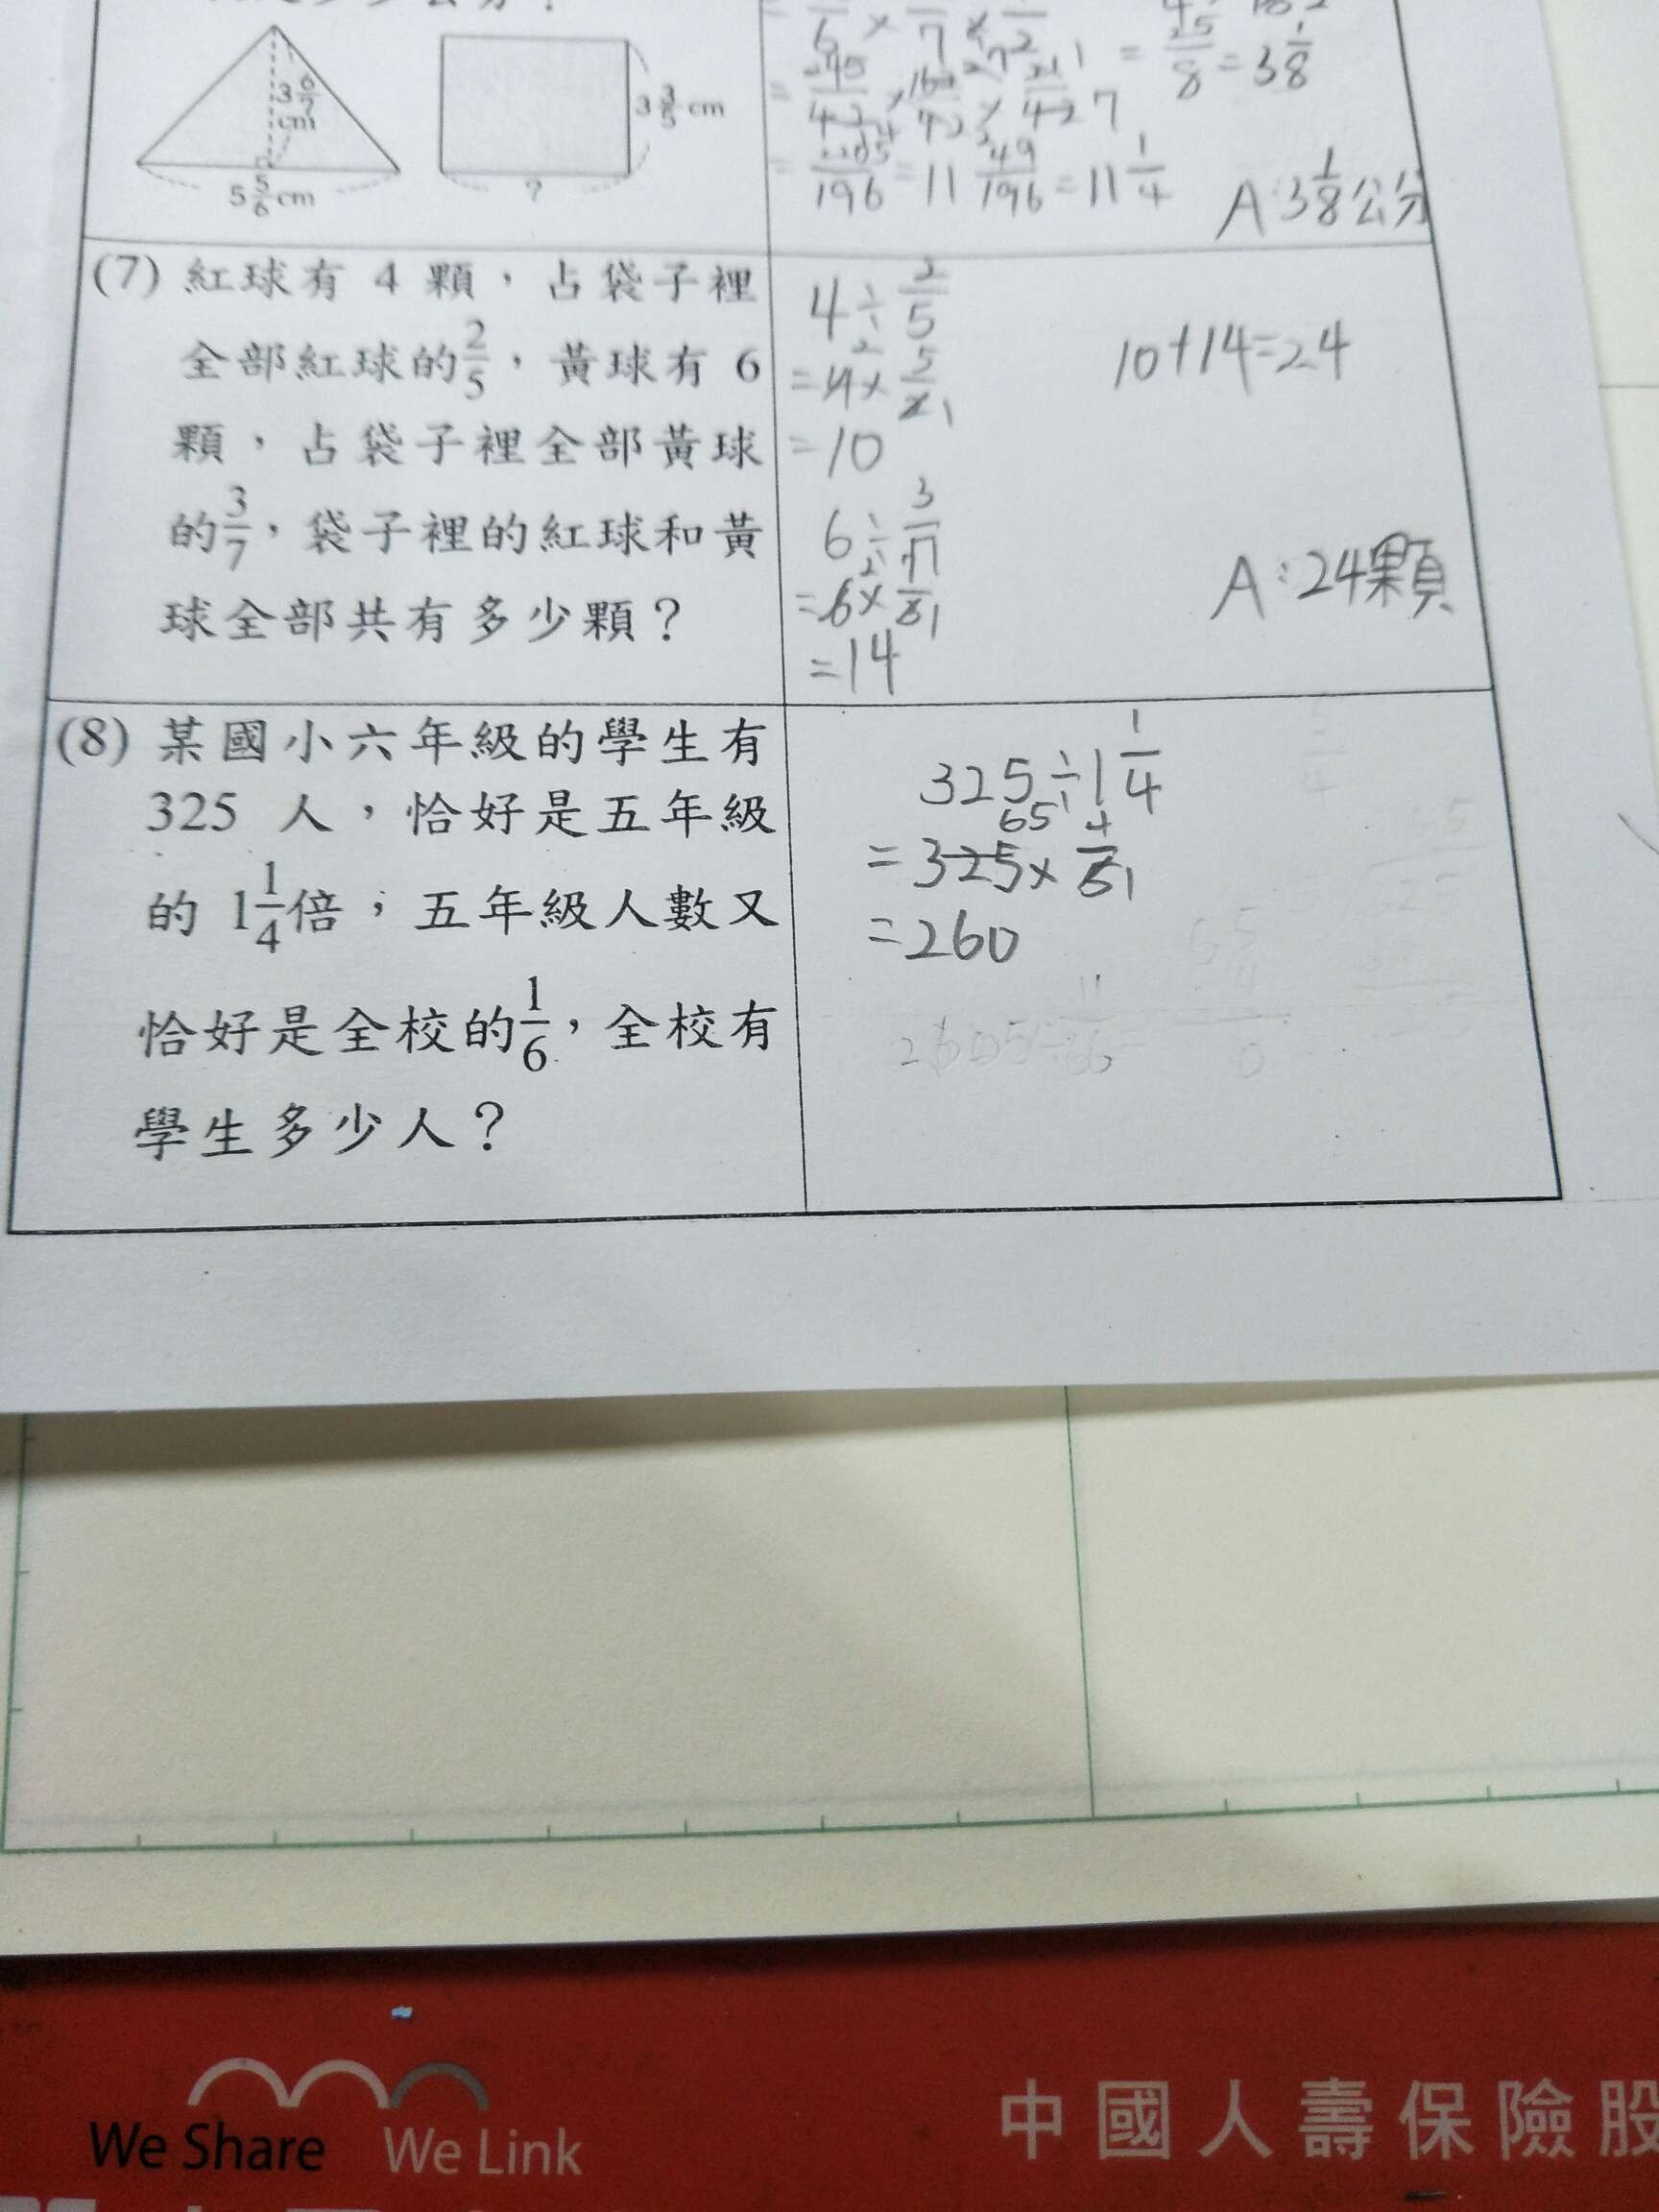 3 6/7 cm
5 5/6 cm
3 3/5 cm
?
= 25/8 = 3 1/8
= 2205/196 = 11 49/196 = 11 1/4
A:3 1/8 公分
(7) 紅球有 4 顆，占袋子裡
全部紅球的2/5，黃球有 6
顆，占袋子裡全部黃球
的3/7，袋子裡的紅球和黃
球全部共有多少顆？
4÷2/5
=4×5/2
=10
6÷3/7
=6×7/3
=14
10+14=24
A:24顆
(8) 某國小六年級的學生有
325 人，恰好是五年級
的 1 1/4倍；五年級人數又
恰好是全校的1/6，全校有
學生多少人？
325÷1 1/4
=325×4/5
=260
We Share We Link
中國人壽保險股